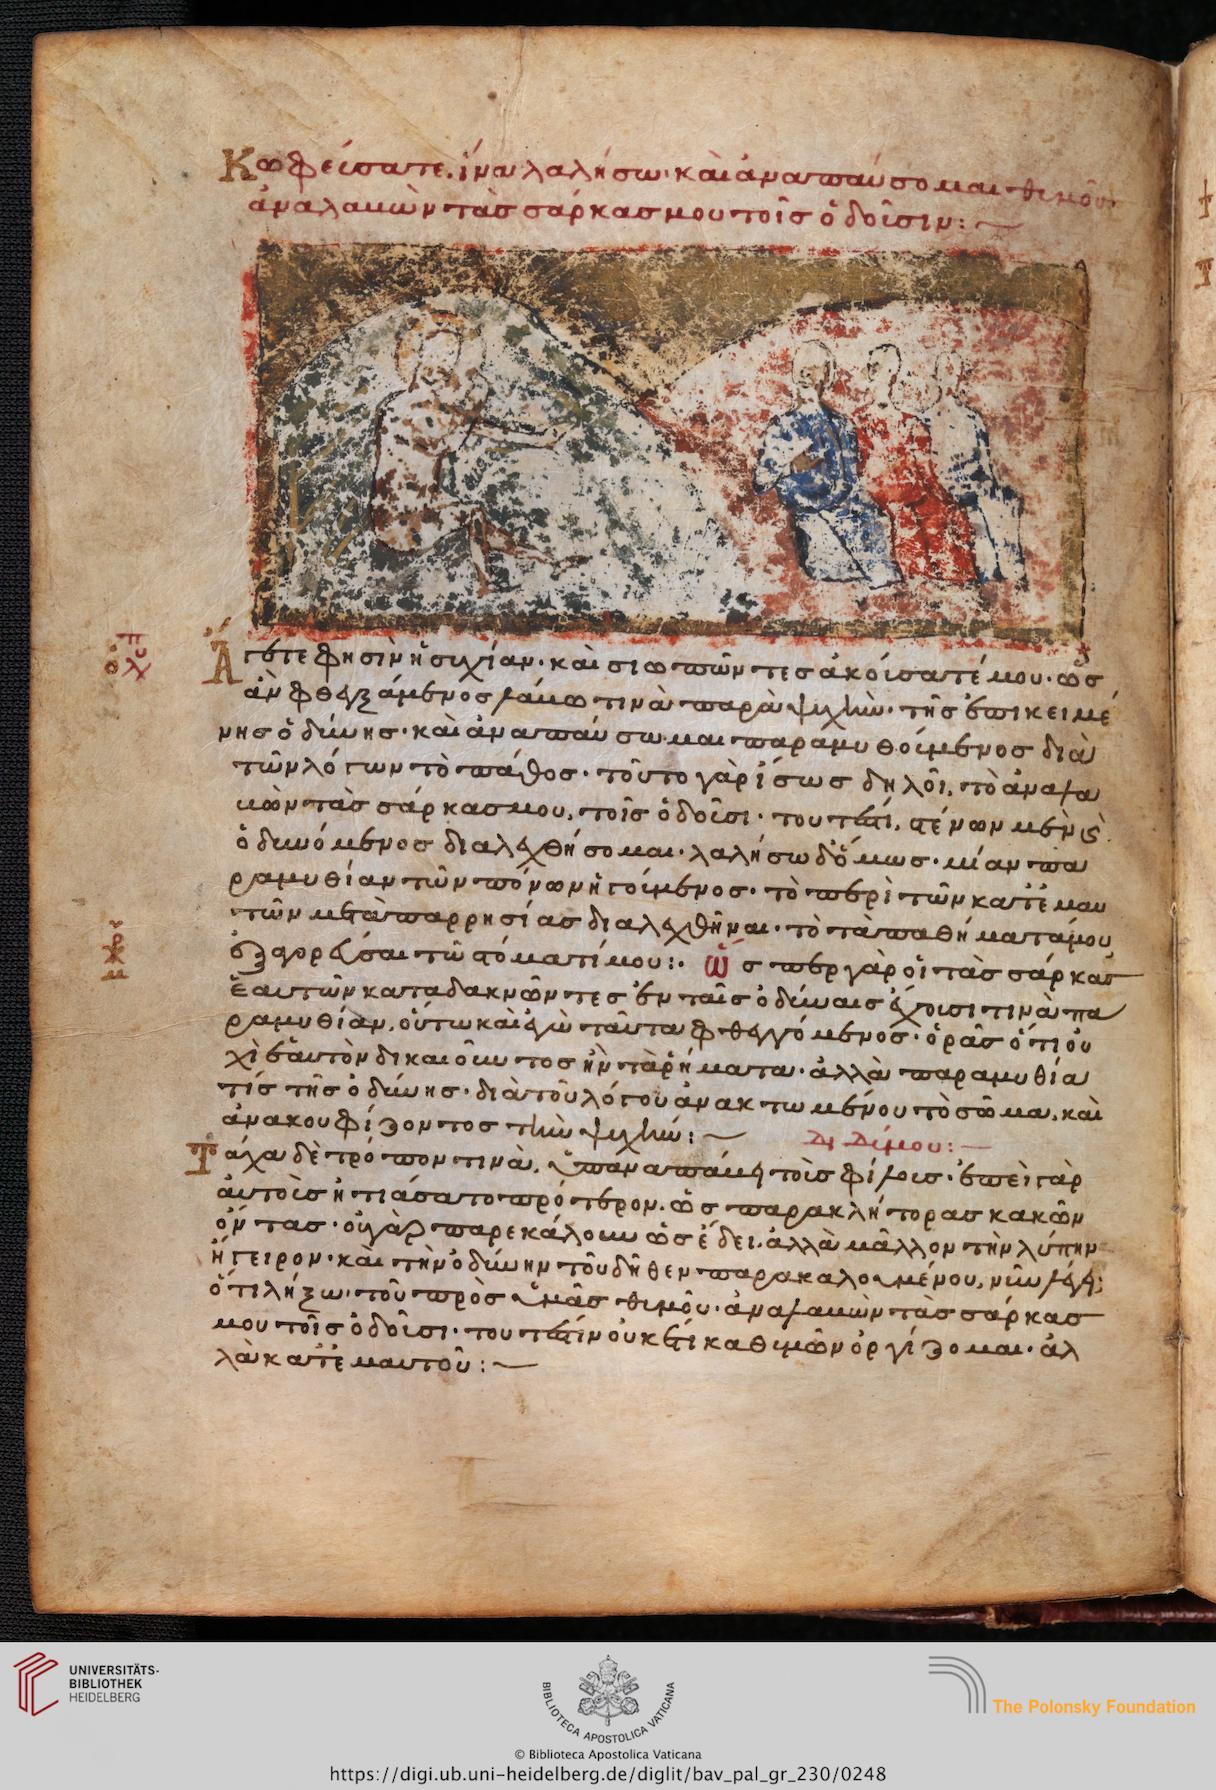 Κωφεύσατε. ἵνα λαλήσω· καὶ ἀναπαύσομαι θυμοῦ·
ἀναλαβὼν τὰς σάρκας μου τοῖς ὀδοῦσιν:
Ἄγετε φησὶν ἡσυχίαν· καὶ σιωπῶντες ἀκούσατέ μου· ὡς
ἂν φθεγξάμενος λάβω τινὰ παραψυχὴν· τῆς ἐπικειμέ
νης ὀδύνης· καὶ ἀναπαύσωμαι παραμυθούμενος διὰ
τῶν λόγων τὸ πάθος· τοῦτο γὰρ ἴσως δηλοῖ, τὸ ἀναλα
βὼν τὰς σάρκας μου, τοῖς ὀδοῦσι· τουτέστι, στένων μὲν καὶ
ὀδυνόμενος διαλεχθήσομαι· λαλήσω δ' ὅμως· μίαν πα
ραμυθίαν τῶν πόνων ἡγούμενος· τὸ περὶ τῶν κατ' ἐμαυ
τῶν μετὰ παρρησίας διαλεχθῆναι· τὸ τὰ παθήματά μου
ἐξαγορεῦσαι τῶ στόματί μου:· ὥσπερ γὰρ οἱ τὰς σάρκας
ἑαυτῶν καταδακνῶντες ἐν ταῖς ὀδύναις ἔχουσι τινὰ πα
ραμυθίαν, οὕτω καὶ ἐγὼ ταῦτα φθεγγόμενος· ὁρᾶς ὅτι οὐ
χὶ ἑαυτὸν δικαιοῦντος ἦν τὰ ῥήματα· ἀλλὰ παραμυθία
τίς τῆς ὀδύνης· διὰ τοῦ λόγου ἀνακτωμένου τὸ σῶμα, καὶ
ἀνακουφίζοντος τὴν ψυχήν: Διδύμου:
Τάχα δὲ τρόπον τινὰ, ἐπαναπαύει τοῖς φίλοις· ἐπεὶ γὰρ
αὐτοὺς ἠτιάσατο πρότερον· ὡς παρακλήτορας κακῶν
ὄντας· οὐ γὰρ παρεκάλουν ὡς ἔδει· ἀλλὰ μᾶλλον τὴν λύπην
ἤγειρον· καὶ τὴν ὀδύνην τοῦ δῆθεν παρακαλουμένου, νῦν λέγει:
ὅτι λήξω· τοῦ πρὸς ὑμᾶς θυμοῦ· ἀναλαβὼν τὰς σάρκας
μου τοῖς ὀδοῦσι· τουτέστιν οὐκέτι καθ' ὑμῶν ὀργίζομαι· ἀλ
λὰ κατ' ἐμαυτοῦ:
UNIVERSITÄTS-
BIBLIOTHEK
HEIDELBERG
BIBLIOTECA APOSTOLICA VATICANA
The Polonsky Foundation
© Biblioteca Apostolica Vaticana
https://digi.ub.uni-heidelberg.de/diglit/bav_pal_gr_230/0248